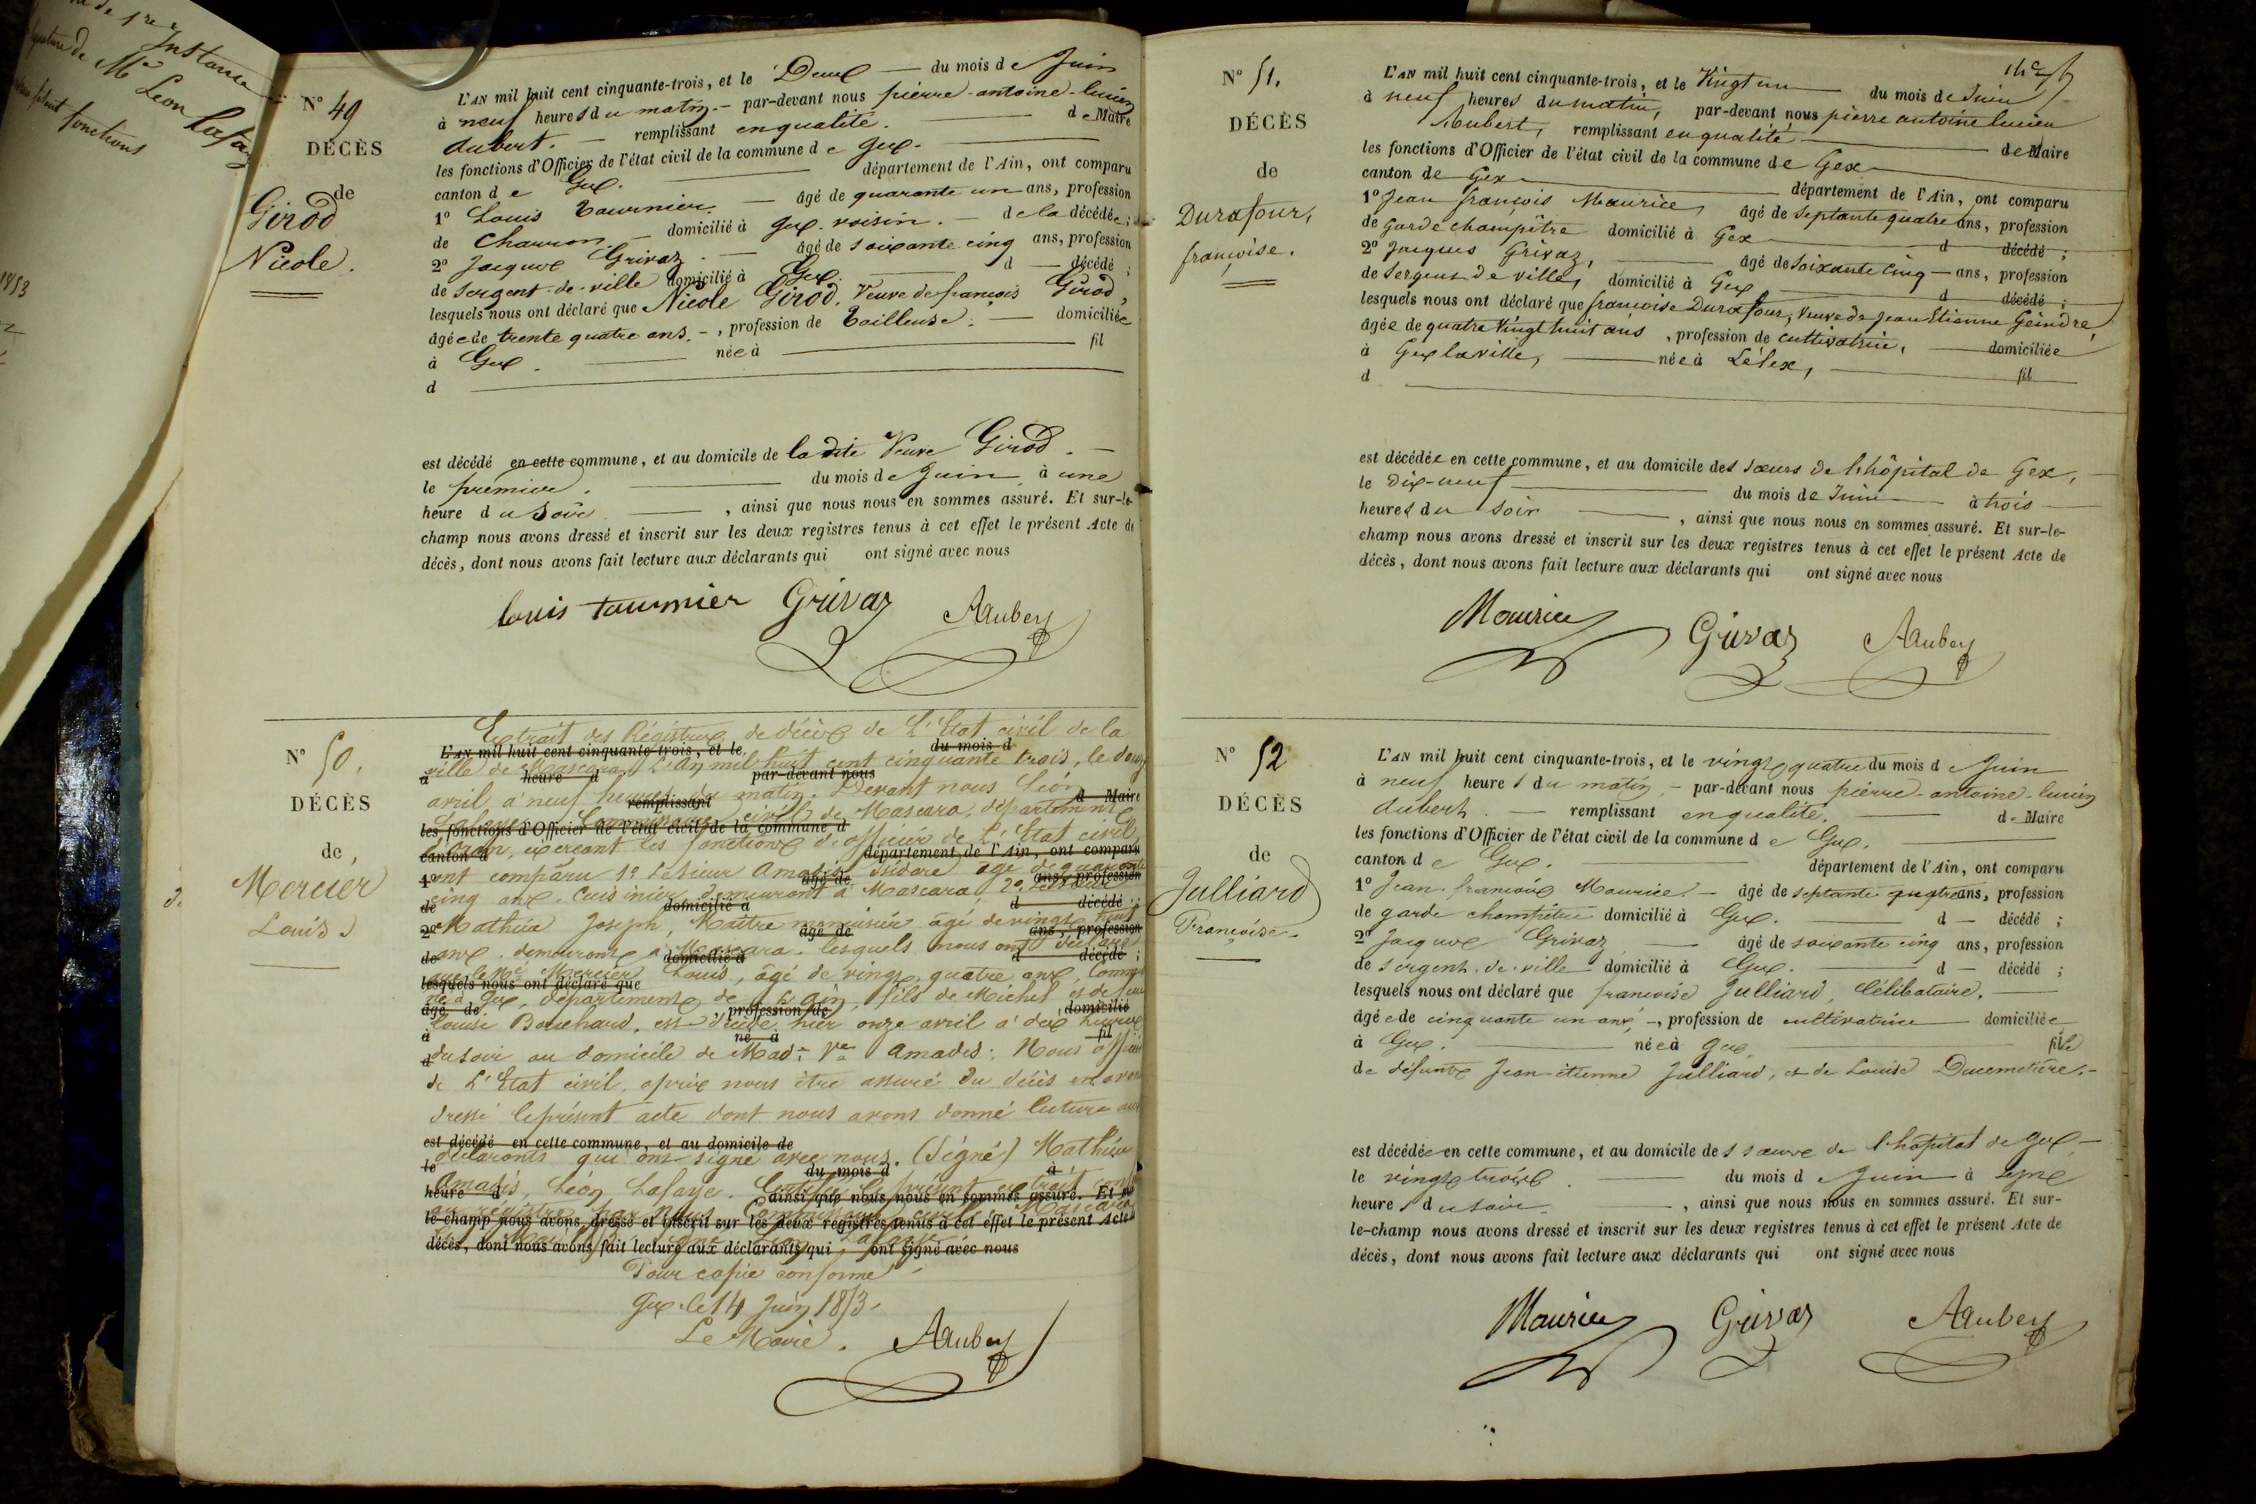 de 1re Instance
signature de Mr Léon Lafaye
fonctions
1853
N° 49
DÉCÈS
de
Girod
Nicole.
L'AN mil huit cent cinquante-trois, et le Deux du mois de Juin
à neuf heures du matin. par-devant nous pierre-antoine-lucien
Aubert. remplissant en qualité. de Maire
les fonctions d'Officier de l'état civil de la commune de Gex.
canton de Gex. département de l'Ain, ont comparu
1° Louis Tournier. âgé de quarante un ans, profession
de Charron. domicilié à Gex. voisin. de la décédée;
2° Jacques Grivaz. âgé de soixante cinq ans, profession
de sergent-de-ville domicilié à Gex. d décédé;
lesquels nous ont déclaré que Nicole Girod. Veuve de françois Girod,
âgée de trente quatre ans. , profession de Tailleuse. domiciliée
à Gex. née à fil
d
est décédé en cette commune, et au domicile de ladite Veuve Girod.
le premier. du mois de Juin à une
heure du soir , ainsi que nous nous en sommes assuré. Et sur-le-
champ nous avons dressé et inscrit sur les deux registres tenus à cet effet le présent Acte de
décès, dont nous avons fait lecture aux déclarants qui ont signé avec nous
Louis tournier Grivaz Aaubert
N° 50.
DÉCÈS
de
Mercier
Louis
Extrait des Régistres de décès de L'Etat civil de la
L'AN mil huit cent cinquante-trois, et le du mois d
ville de Mascara. L'an mil huit cent cinquante trois, le douze
à heure d par-devant nous
avril à neuf heures du matin. Devant nous Léon
remplissant d Maire
Lafaye, Commissaire civil de Mascara, département
les fonctions d'Officier de l'état civil de la commune d
d'Oran, exerçant les fonctions d'officier de L'Etat civil,
canton d département de l'Ain, ont comparu
ont comparu 1° Le sieur Amadis Isidore âgé de quarante
1° âgé de ans, profession
cinq ans. Cuisinier demeurant à Mascara, 2° Le sieur
de domicilié à d décédé;
Mathieu Joseph, Maître menuisier âgé de vingt huit
2° âgé de ans, profession
ans. demeurant à Mascara. lesquels nous ont déclaré
de domicilié à d décédé;
que le né Mercier Louis, âgé de vingt quatre ans,
lesquels nous ont déclaré que
né à Gex, département de L'Ain, fils de Michel et de
âgé de profession de domicilié
Louise Bouchard, est décédé hier onze avril à dix heures
à né à fil
du soir au domicile de Made Ve Amadis: Nous officier
d
de L'Etat civil, après nous être assuré du décès en avons
dressé le présent acte dont nous avons donné lecture aux
est décédé en cette commune, et au domicile de
déclarants qui ont signé avec nous. (Signé) Mathieu
le du mois d à
Amadis, Léon Lafaye. Certifié le présent extrait
heure d ainsi que nous nous en sommes assuré. Et sur-
au registre par Nous Commissaire civil. Mascara
le-champ nous avons dressé et inscrit sur les deux registres tenus à cet effet le présent Acte de
décès, dont nous avons fait lecture aux déclarants qui ont signé avec nous
Pour copie conforme
Gex. le 14 Juin 1853.
Le Maire. Aaubert
14e
N° 51.
DÉCÈS
de
Durafour,
françoise.
L'AN mil huit cent cinquante-trois, et le Vingt un du mois de Juin
à neuf heures du matin, par-devant nous pierre antoine lucien
Aubert, remplissant en qualité de Maire
les fonctions d'Officier de l'état civil de la commune de Gex
canton de Gex département de l'Ain, ont comparu
1° Jean françois Maurice, âgé de septante quatre ans, profession
de Garde champêtre domicilié à Gex d décédé;
2° Jacques Grivaz, âgé de soixante cinq ans, profession
de Sergent de ville, domicilié à Gex d décédé;
lesquels nous ont déclaré que françoise Durafour, veuve de Jean Etienne Geindre,
âgée de quatre Vingt huit ans, profession de cultivatrice, domiciliée
à Gex la ville, née à Lélex, fil
d
est décédée en cette commune, et au domicile des sœurs de l'hôpital de Gex,
le Dix-neuf du mois de Juin à trois
heures du soir , ainsi que nous nous en sommes assuré. Et sur-le-
champ nous avons dressé et inscrit sur les deux registres tenus à cet effet le présent Acte de
décès, dont nous avons fait lecture aux déclarants qui ont signé avec nous
Maurice Grivaz Aaubert
N° 52
DÉCÈS
de
Julliard
Françoise.
L'AN mil huit cent cinquante-trois, et le vingt quatre du mois de Juin
à neuf heures du matin, par-devant nous pierre-antoine-lucien
Aubert. remplissant en qualité. de Maire
les fonctions d'Officier de l'état civil de la commune de Gex.
canton de Gex. département de l'Ain, ont comparu
1° Jean-françois Maurice. âgé de septante quatre ans, profession
de garde champêtre domicilié à Gex. d décédé;
2° Jacques Grivaz âgé de soixante cinq ans, profession
de sergent-de-ville domicilié à Gex. d décédé;
lesquels nous ont déclaré que françoise Julliard, Célibataire.
âgée de cinquante un ans, profession de cultivatrice domiciliée
à Gex. née à Gex. fille
de défunts Jean-étienne Julliard, et de Louise Ducimetière.
est décédée en cette commune, et au domicile des sœurs de l'hôpital de Gex,
le vingt trois. du mois de Juin à sept
heures du soir. , ainsi que nous nous en sommes assuré. Et sur-
le-champ nous avons dressé et inscrit sur les deux registres tenus à cet effet le présent Acte de
décès, dont nous avons fait lecture aux déclarants qui ont signé avec nous
Maurice Grivaz Aaubert